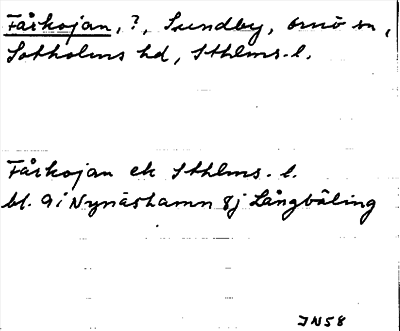 Fårkojan, ?, Sundby, Ornö sn,
Sotholms hd, Sthlms. l.
Fårkojan ek Sthlms. l.
bl. 9i Nynäshamn 8j Långbäling
JN58